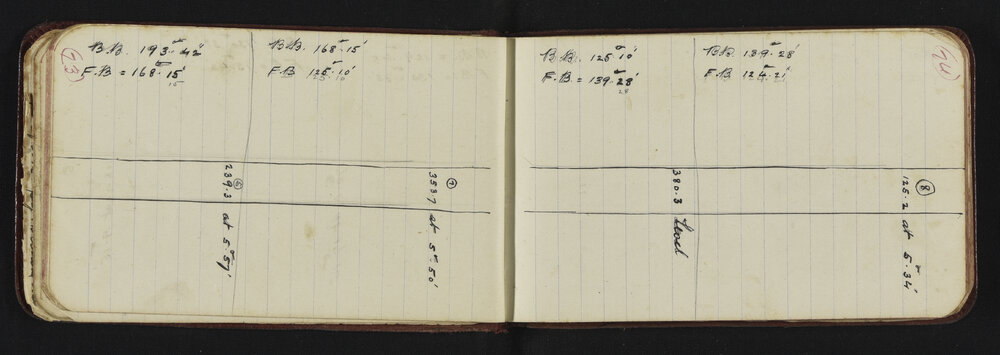 73
B.B. 193° 42'
F.B = 168° 15'
15
B.B. 168° 15'
F.B 125° 10'
⑥
239.3 at 5° 57'
⑦
353.7 at 5° 50'
74
B.B. 125° 10'
F.B = 139° 28'
28
B.B. 139° 28'
F.B 124° 21'
380.3 Level
⑧
125.2 at 5° 34'